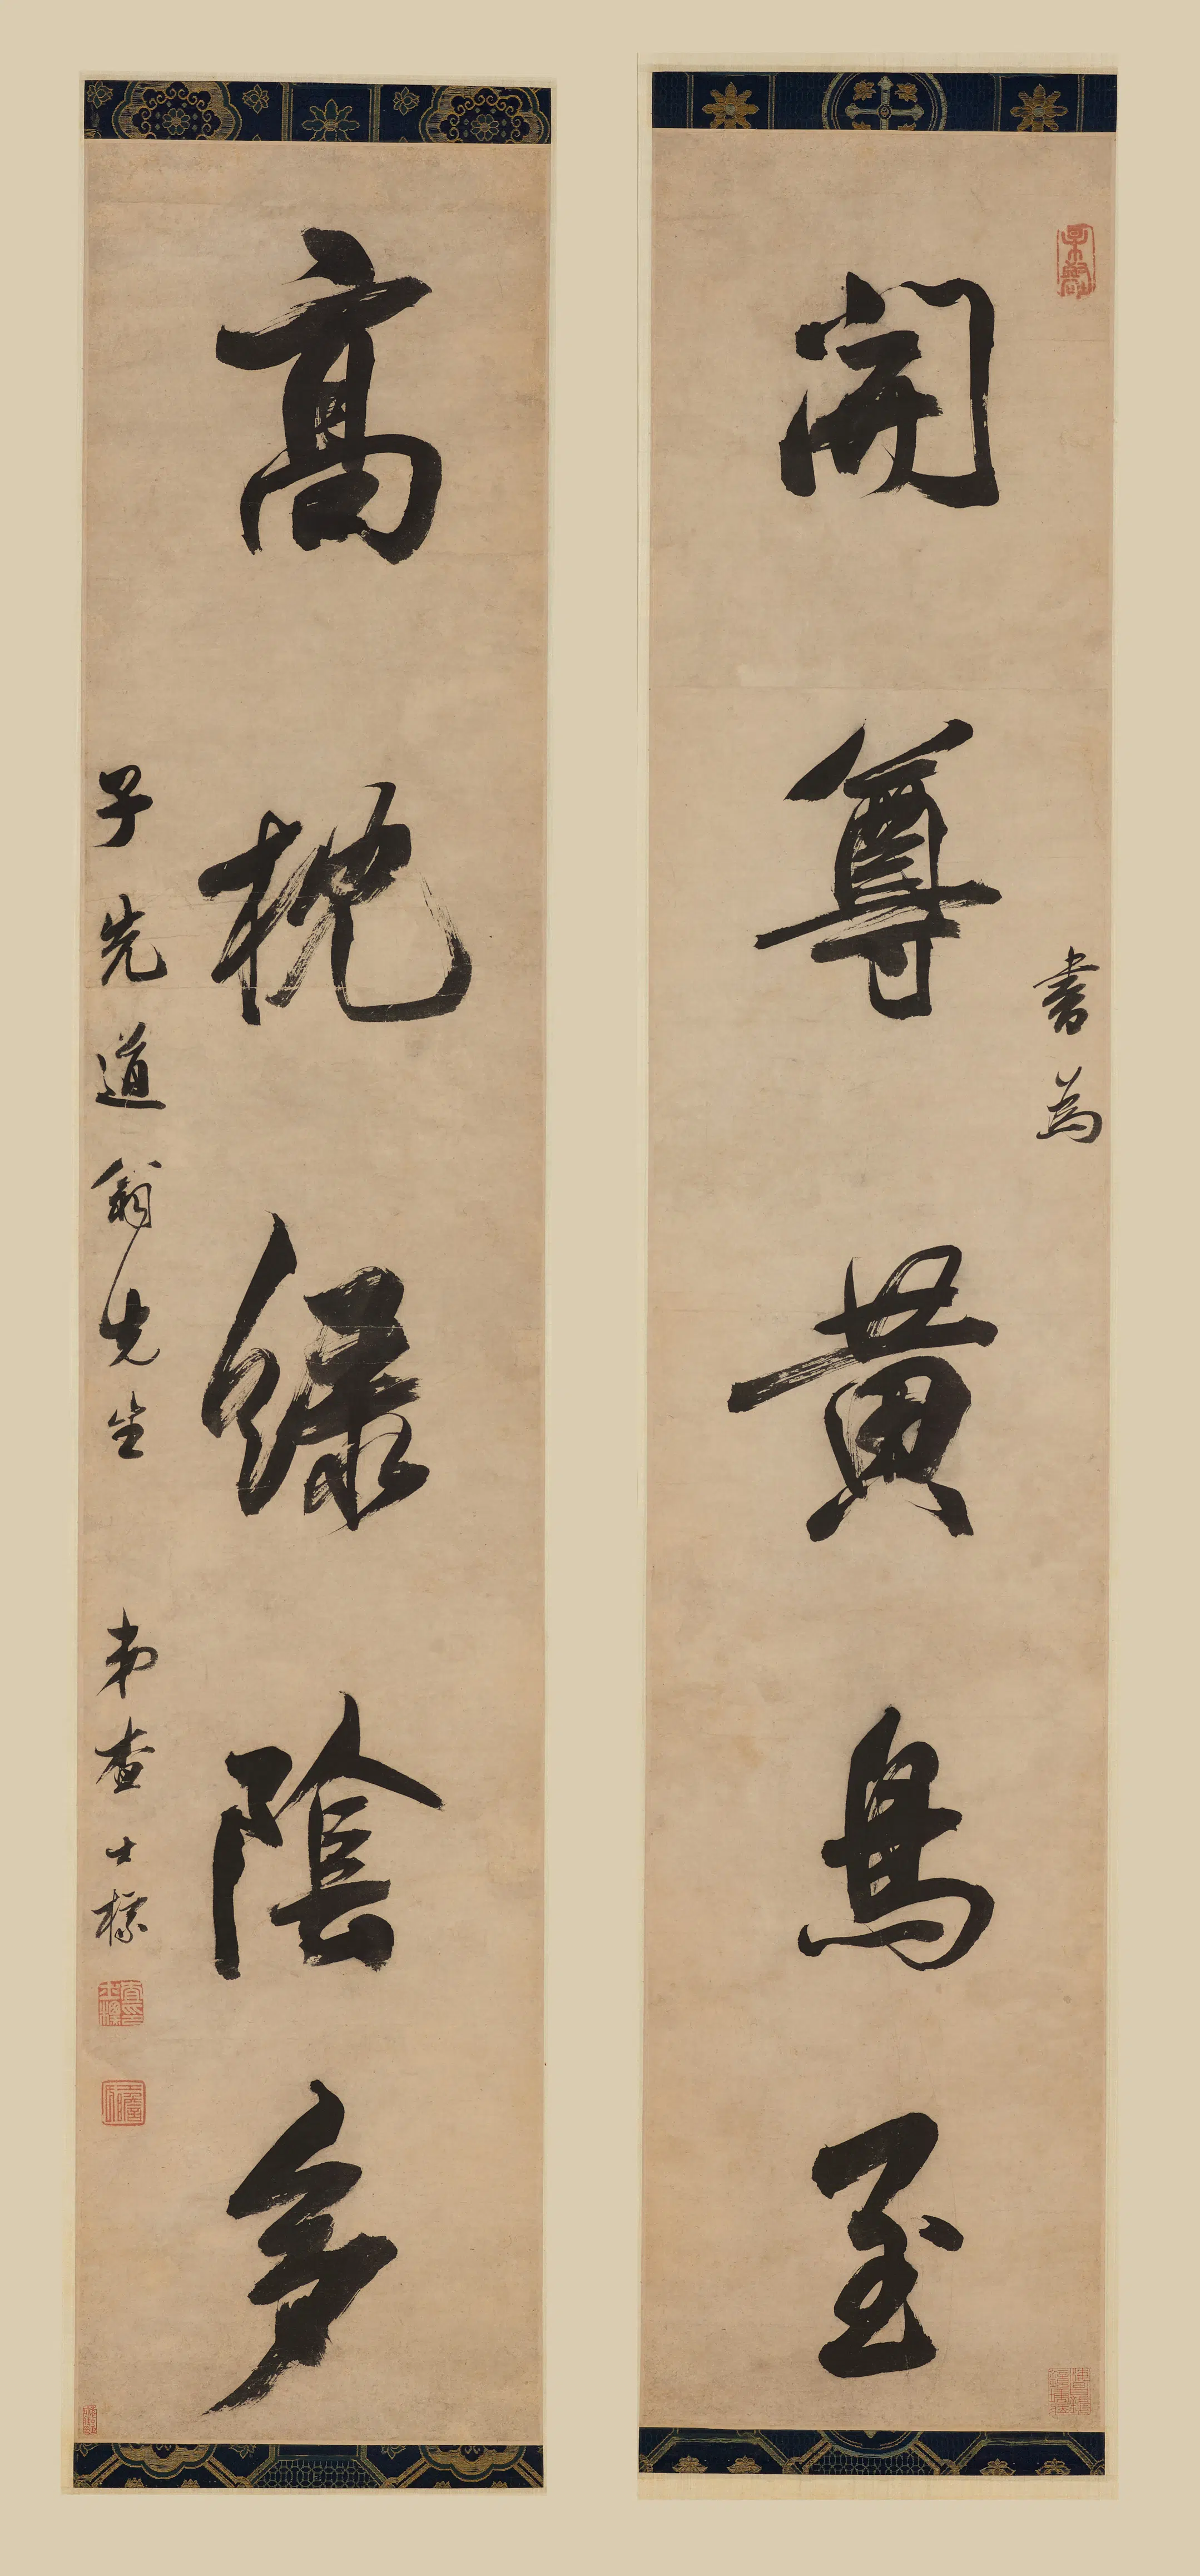 書為
開尊黃鳥至
高枕綠陰多
子先道翁先生 弟查士標